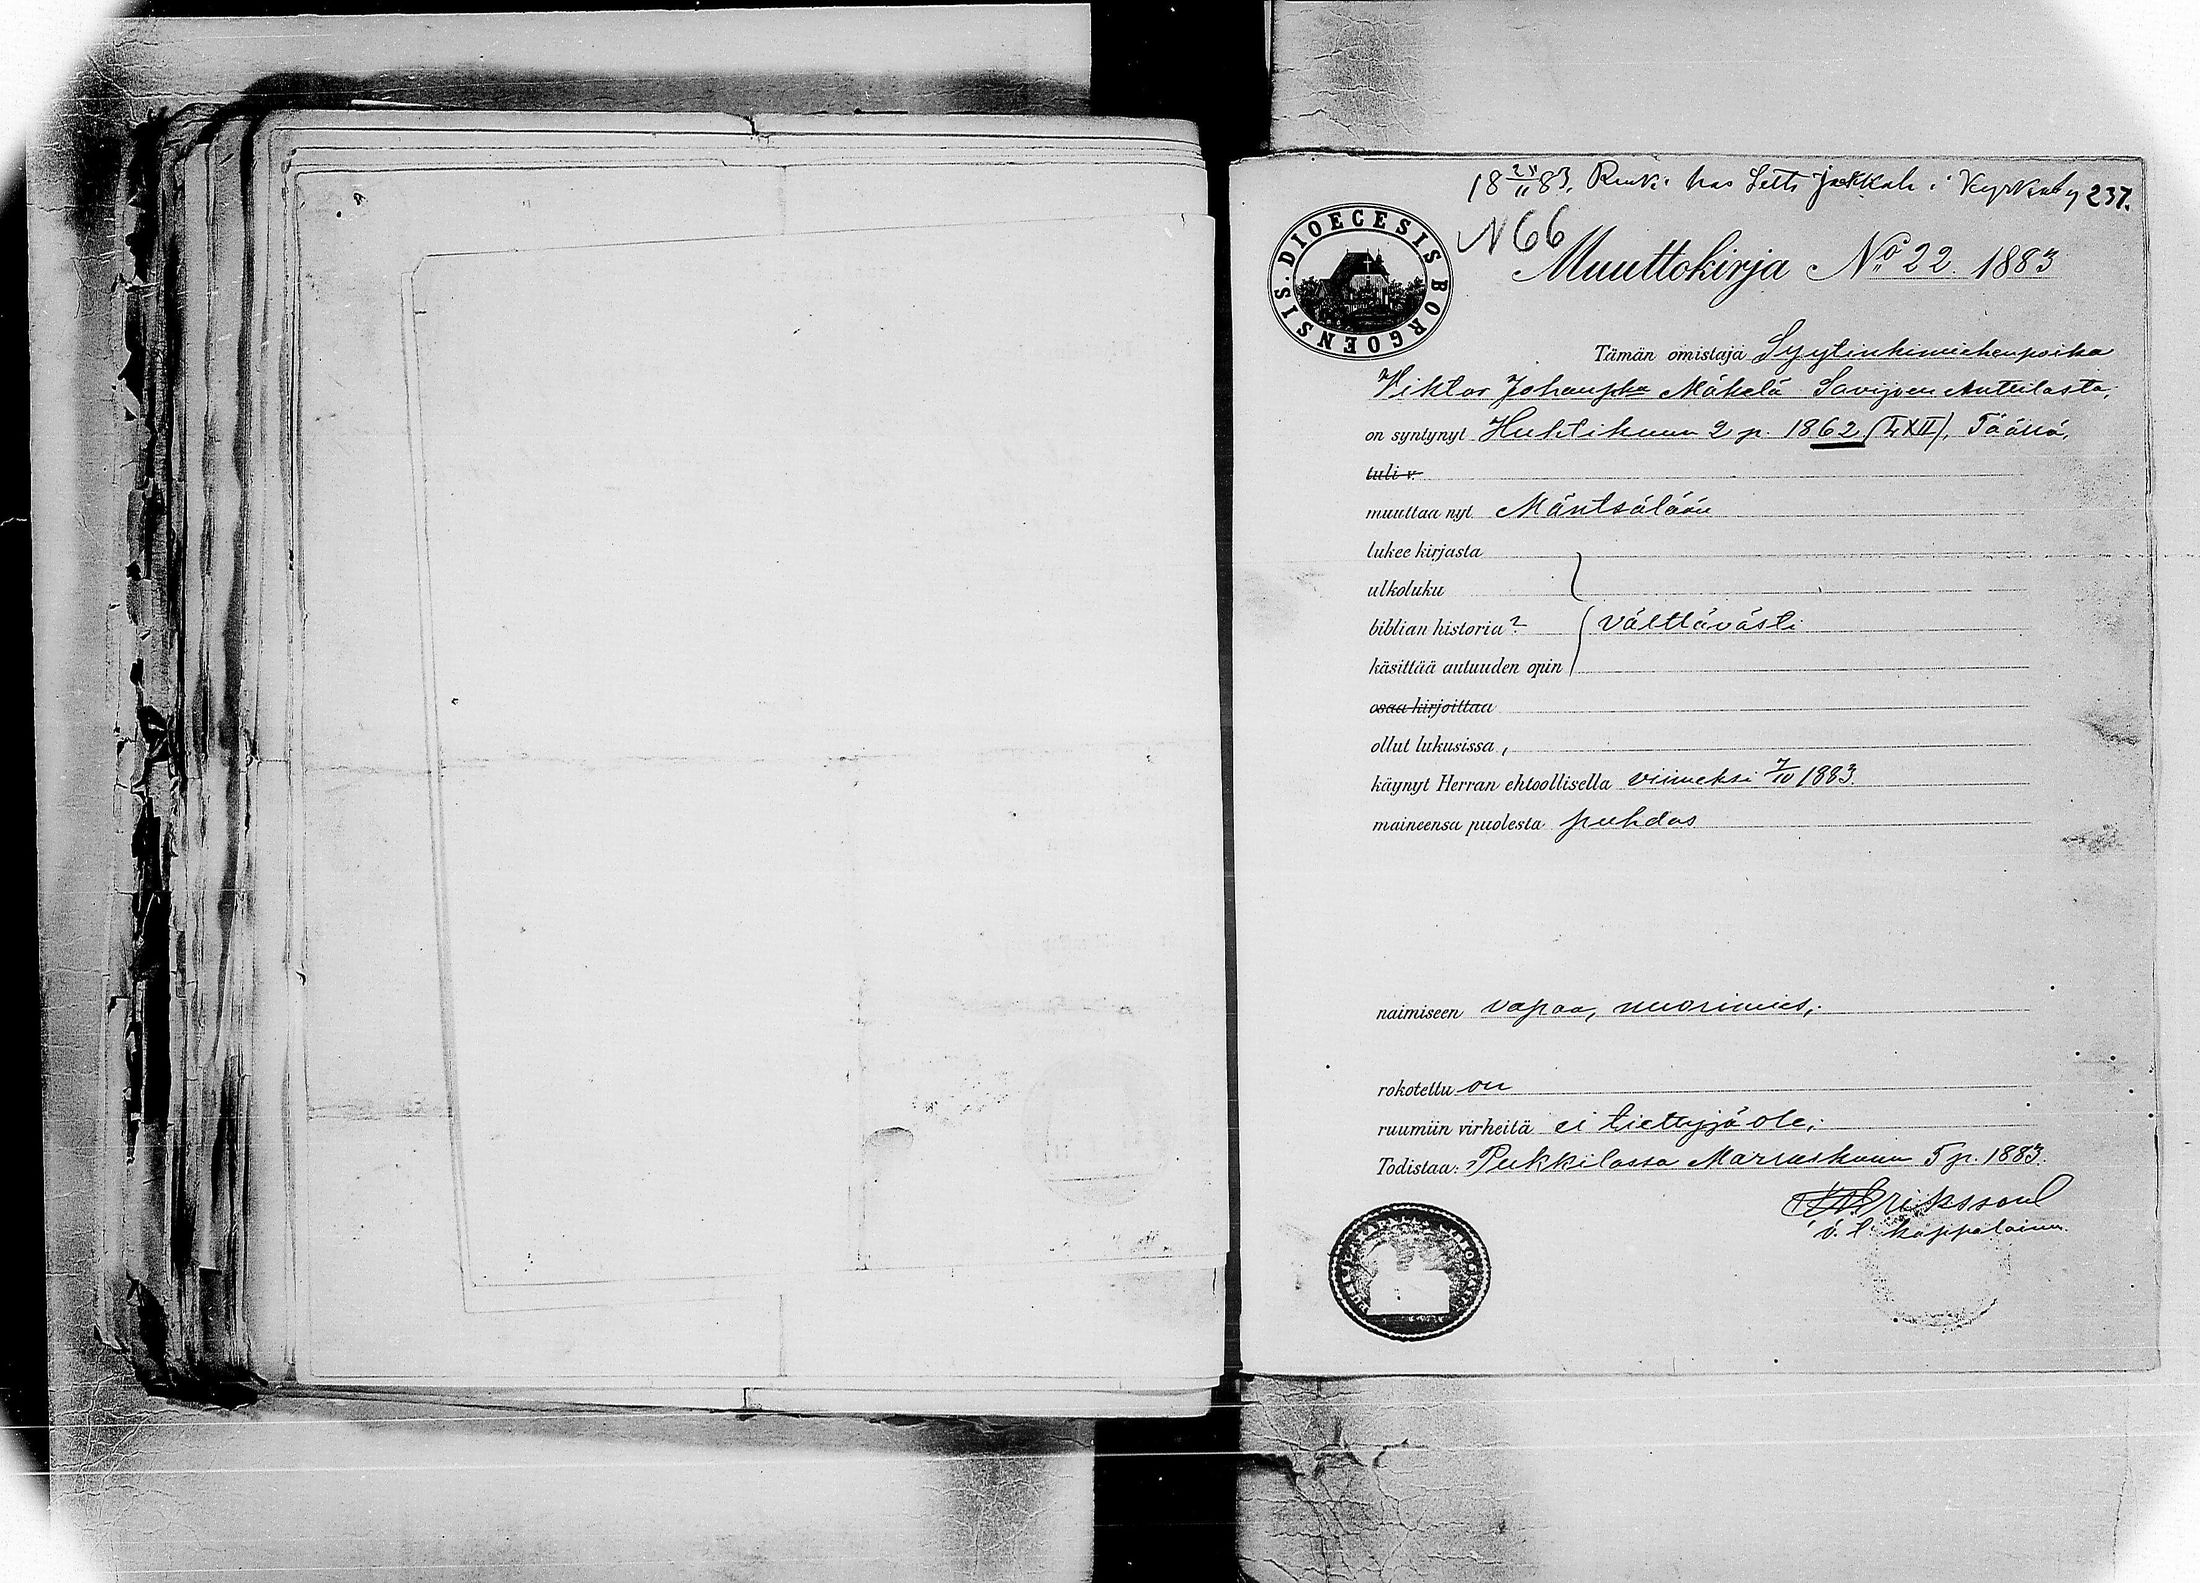 18 25/11 83. Renki hos Setti Jakkala i Kyrkoby 237.
N 66
DIOECESIS BORGOENSIS.
Muuttokirja No 22. 1883
Tämän omistaja Syytinkimiehenpoika
Viktor Johanpka Mäkelä Savijoen Anttilasta,
on syntynyt Huhtikuun 2 p. 1862 (LXII), Täällä,
tuli v.
muuttaa nyt Mäntsälään
lukee kirjasta
ulkoluku
biblian historia? välttävästi
käsittää autuuden opin
osaa kirjoittaa
ollut lukusissa,
käynyt Herran ehtoollisella viimeksi 7/10 1883.
maineensa puolesta puhdas
naimiseen vapaa, nuorimies,
rokotettu on
ruumiin virheitä ei tiettyjä ole,
Todistaa: Pukkilassa Marraskuun 5 p. 1883.
Eriksson
v. t. kappalainen